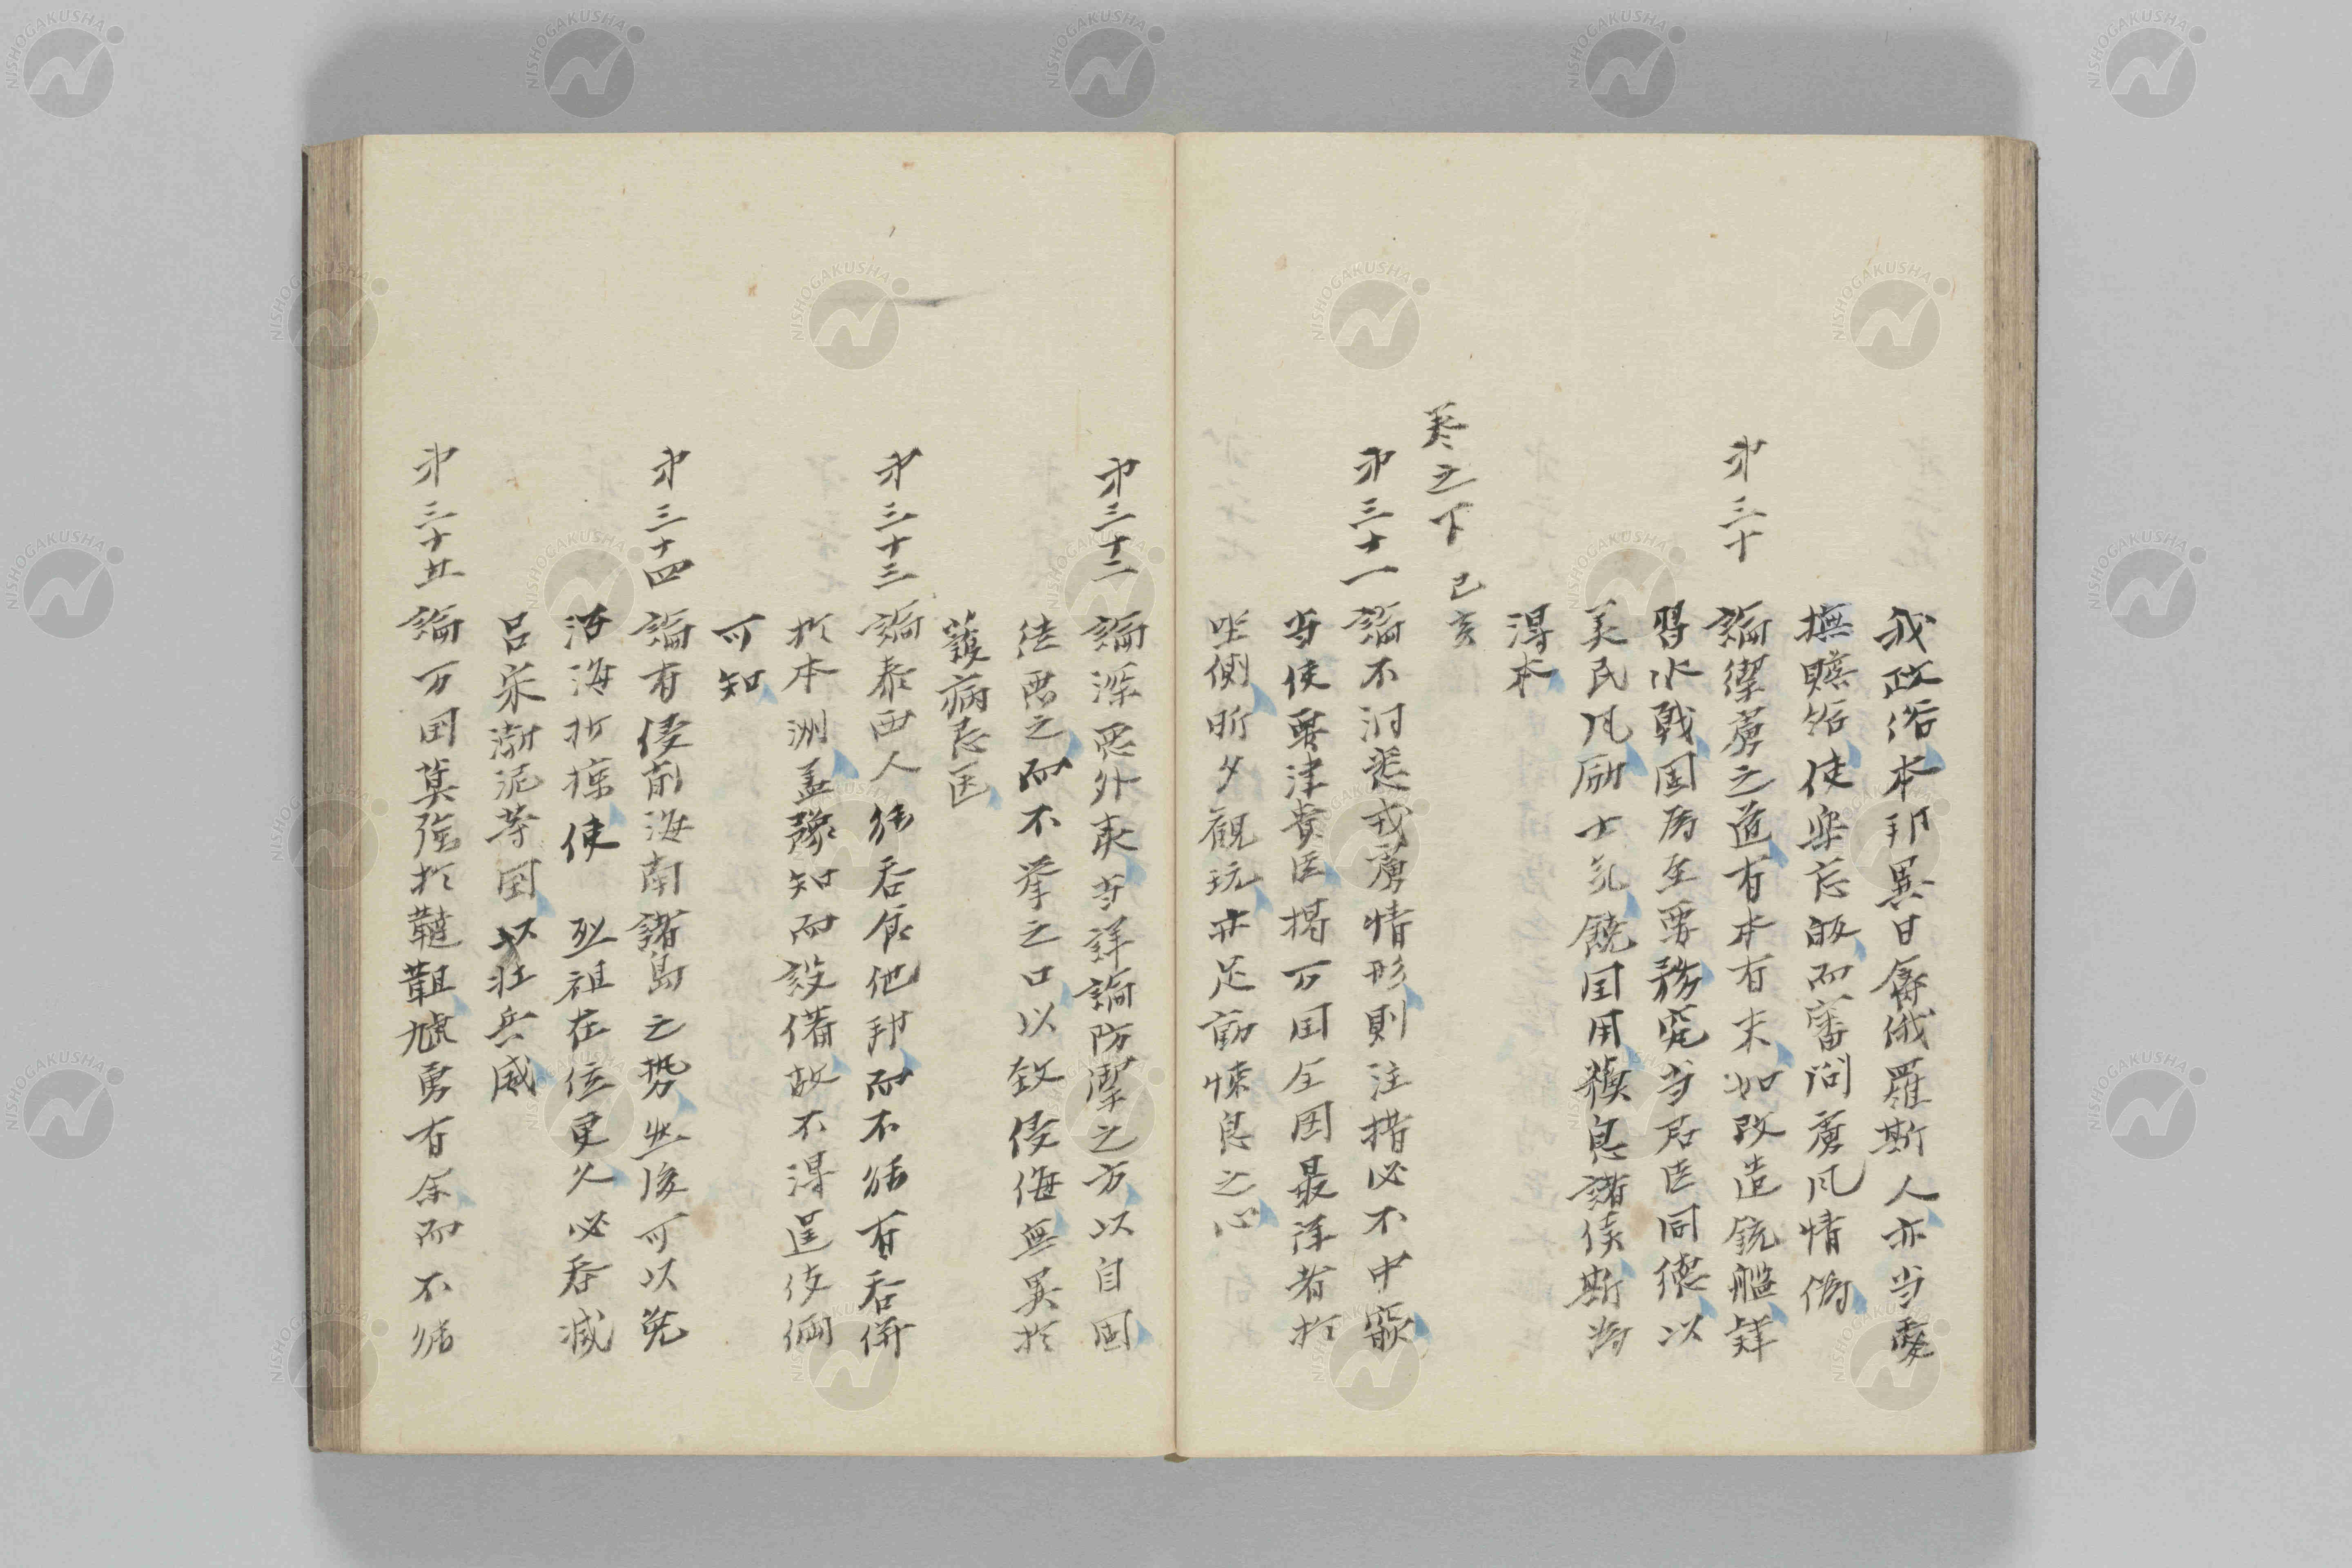 我政俗本邦異日俘俄羅斯人亦当愛
撫贍給使樂忘皈而審問虜風情偽
第三十 論禦虜之道有本有末如改造銃艦詳
習水戦固為至要務究当君臣同徳以
美民凡励士気饒国用糗息諸侯斯為
得本
巻之下 己亥
第三十一 論不洞悉戎虜情形則注措必不中窾
当使要津貴臣掲万国全図最詳者於
坐側昕夕観玩亦足動悚息之心
第三十二 論深悪外夷当詳論防禦之方以自固
徒悪之而不挙之口以致侵侮無異於
護病忌医
第三十三 論泰西人能呑食他邦而不能有呑併
於本洲盖予知而設備故不得逞伎倆
可知
第三十四 論有侵削海南諸島之勢然後可以免
沿海折掠使 烈祖在位更久必呑滅
呂宋渤泥等国以壮兵威
第三十五 論万国莫強於韃靼虓勇有余而不能
NISHOGAKUSHA